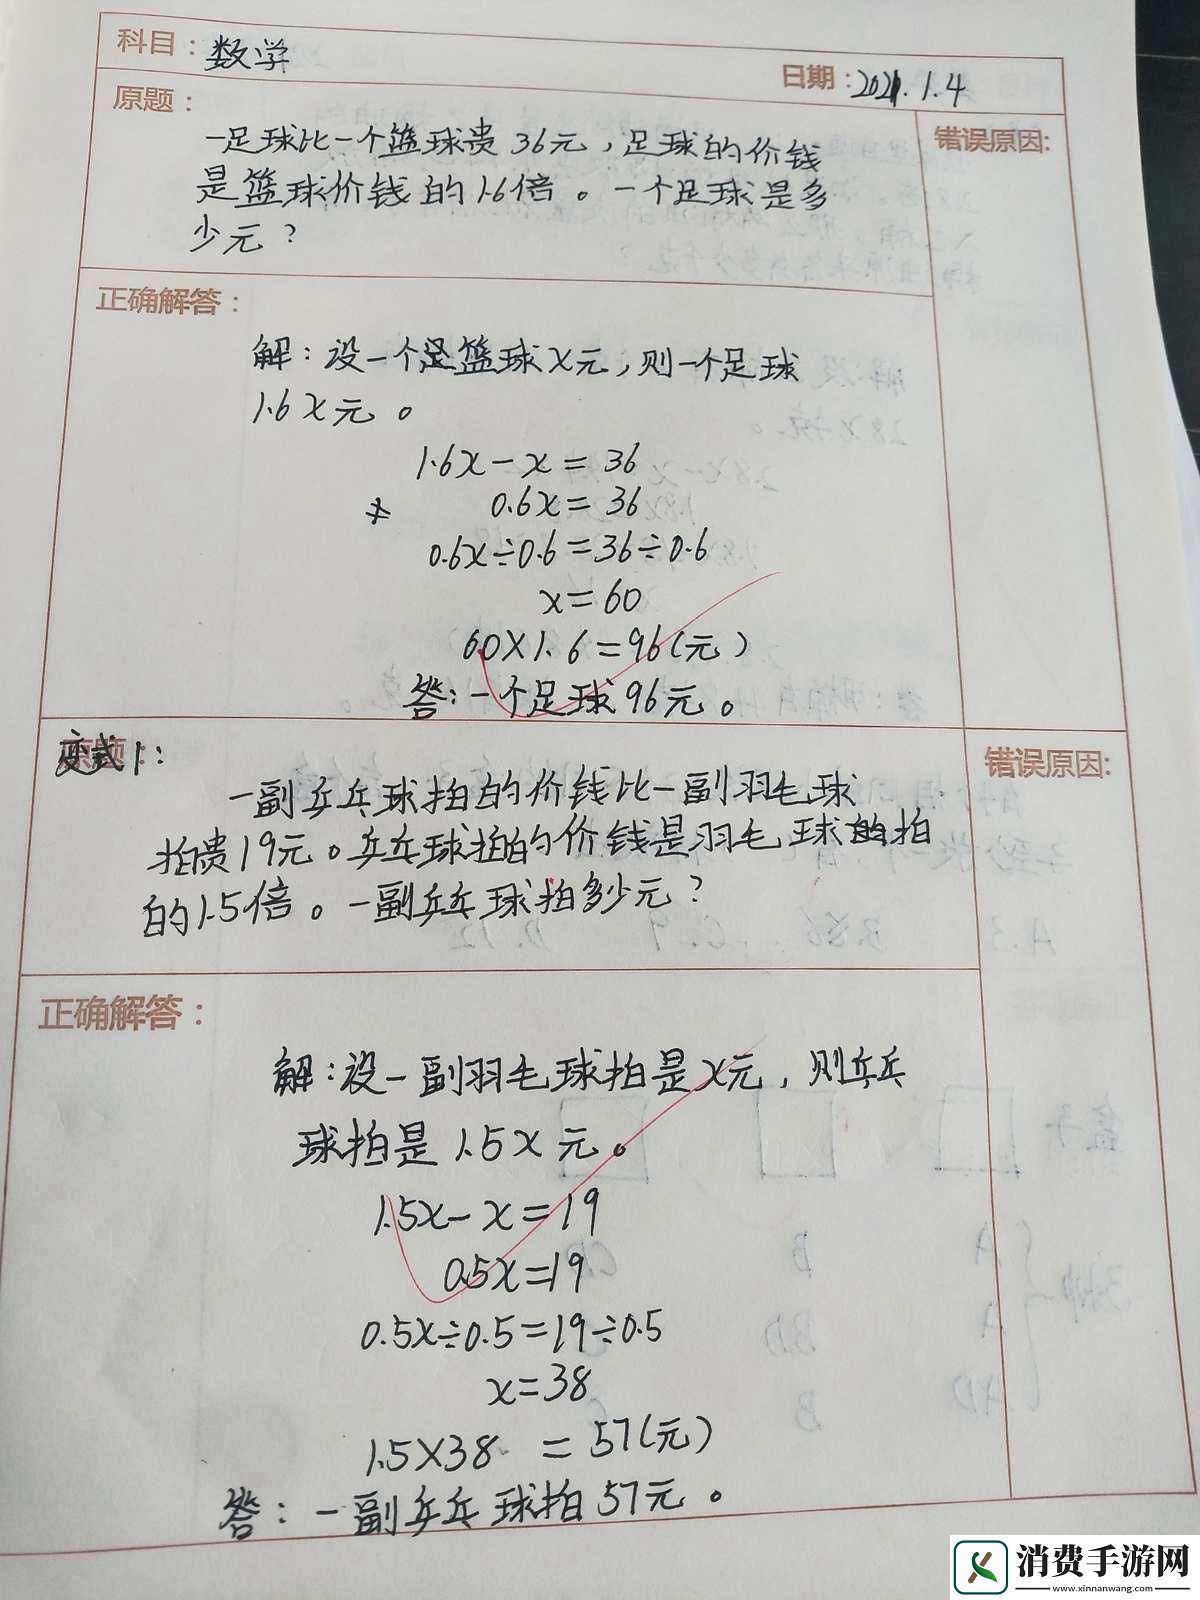 科目：数学
日期：2021.1.4
原题：
错误原因:
一足球比一个篮球贵36元，足球的价钱
是篮球价钱的1.6倍。一个足球是多
少元？
正确解答：
解：设一个篮球x元，则一个足球
1.6x元。
1.6x－x＝36
0.6x＝36
0.6x÷0.6＝36÷0.6
x＝60
60×1.6＝96(元)
答：一个足球96元。
变式1：
错误原因:
一副乒乓球拍的价钱比一副羽毛球
拍贵19元。乒乓球拍的价钱是羽毛球拍
的1.5倍。一副乒乓球拍多少元？
正确解答：
解：设一副羽毛球拍是x元，则乒乓
球拍是1.5x元。
1.5x－x＝19
0.5x＝19
0.5x÷0.5＝19÷0.5
x＝38
1.5×38＝57(元)
答：一副乒乓球拍57元。
消费手游网
www.xinnanwang.com